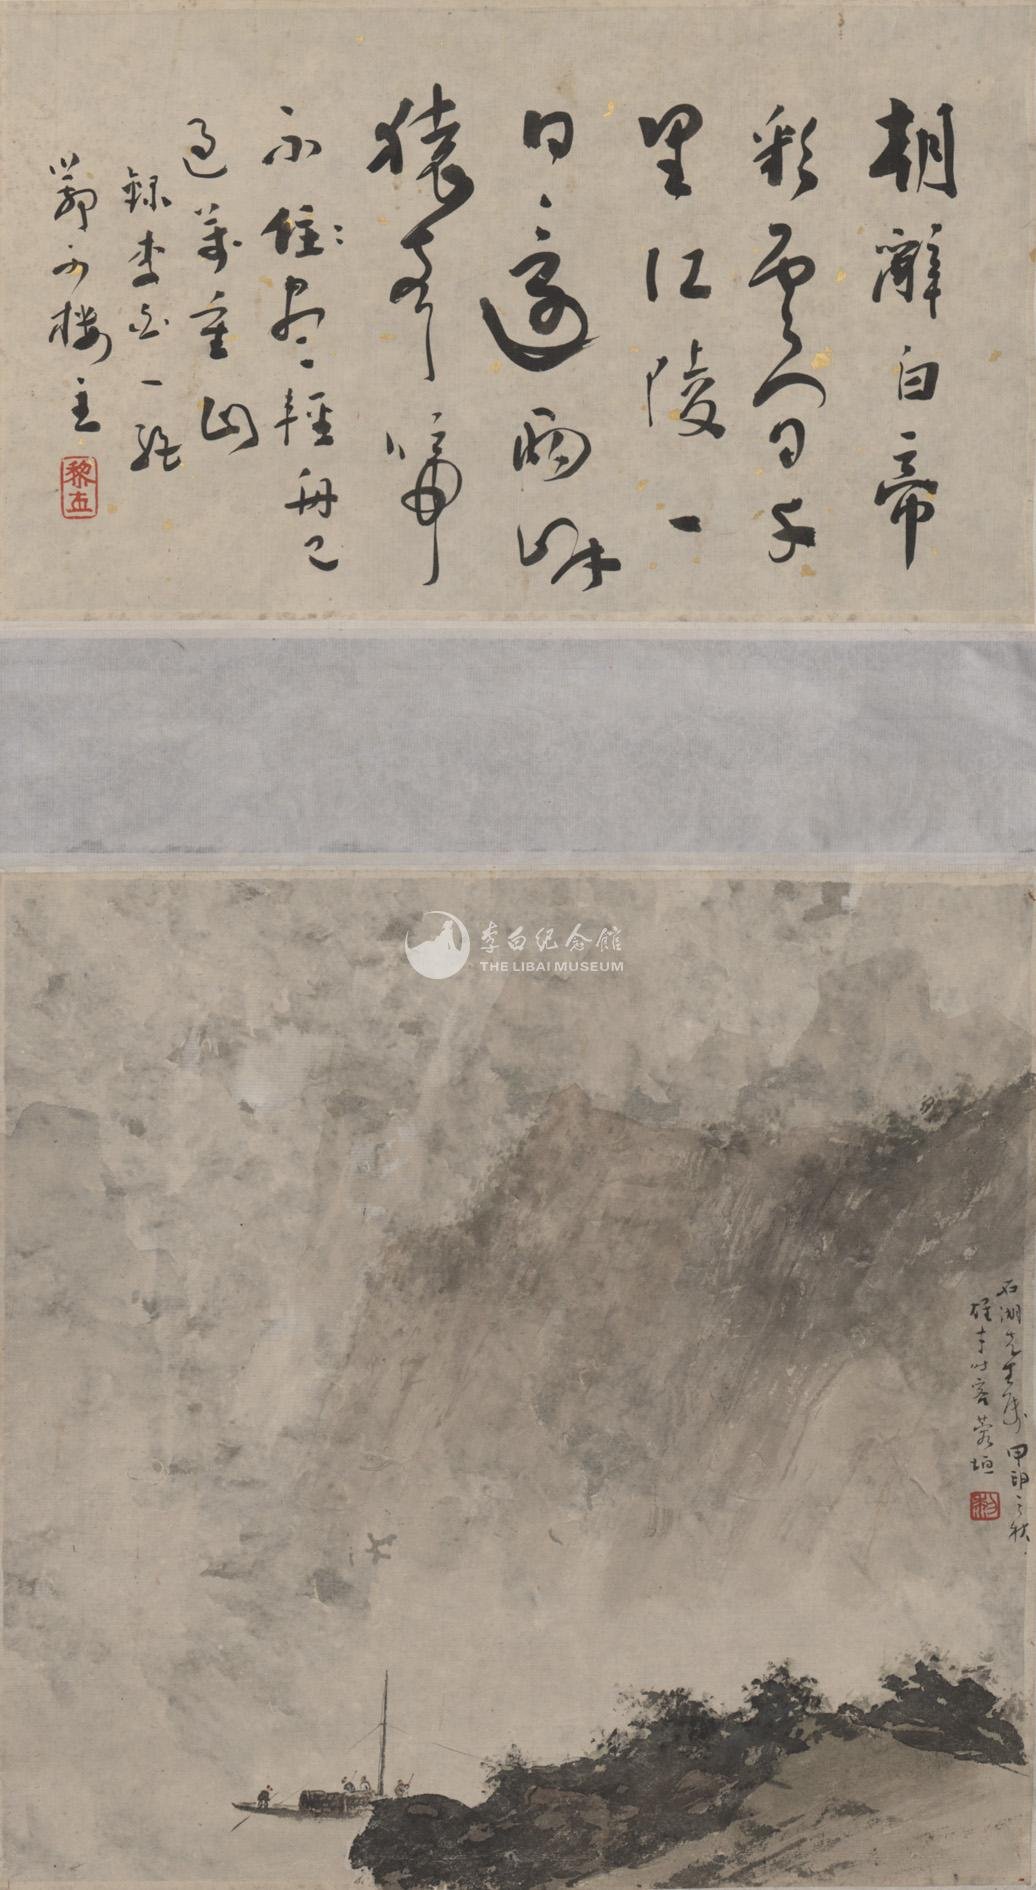 朝辭白帝
彩雲間千
里江陵一
日還兩岸
猿聲啼
不住盡輕舟已
過萬重山
錄李白一絕
樓主
黎
李白纪念馆
THE LIBAI MUSEUM
石湖先生屬 甲申之秋
雄才時客蓉垣